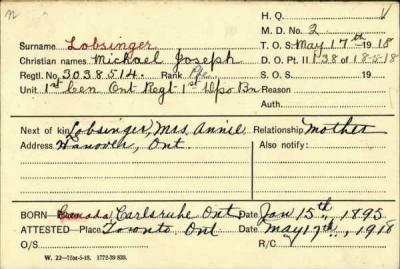 n H. Q.
M. D. No. 2
Surname Lobsinger T. O. S. May 17th 1918
Christian names Michael Joseph D. O. Pt. II 138 of 18-5-18
Regtl. No. 3038514. Rank Pte S. O. S. 19
Unit 1st Cen Ont Regt 1st Dpo Bn Reason
Auth.
Next of kin Lobsinger, Mrs. Annie Relationship Mother
Address Hanover, Ont Also notify:
BORN Place Canada, Carlsruhe Ont Date Jan 15th, 1895
ATTESTED Place Toronto Ont Date May 17th, 1918
O/S R/C
W. 22—